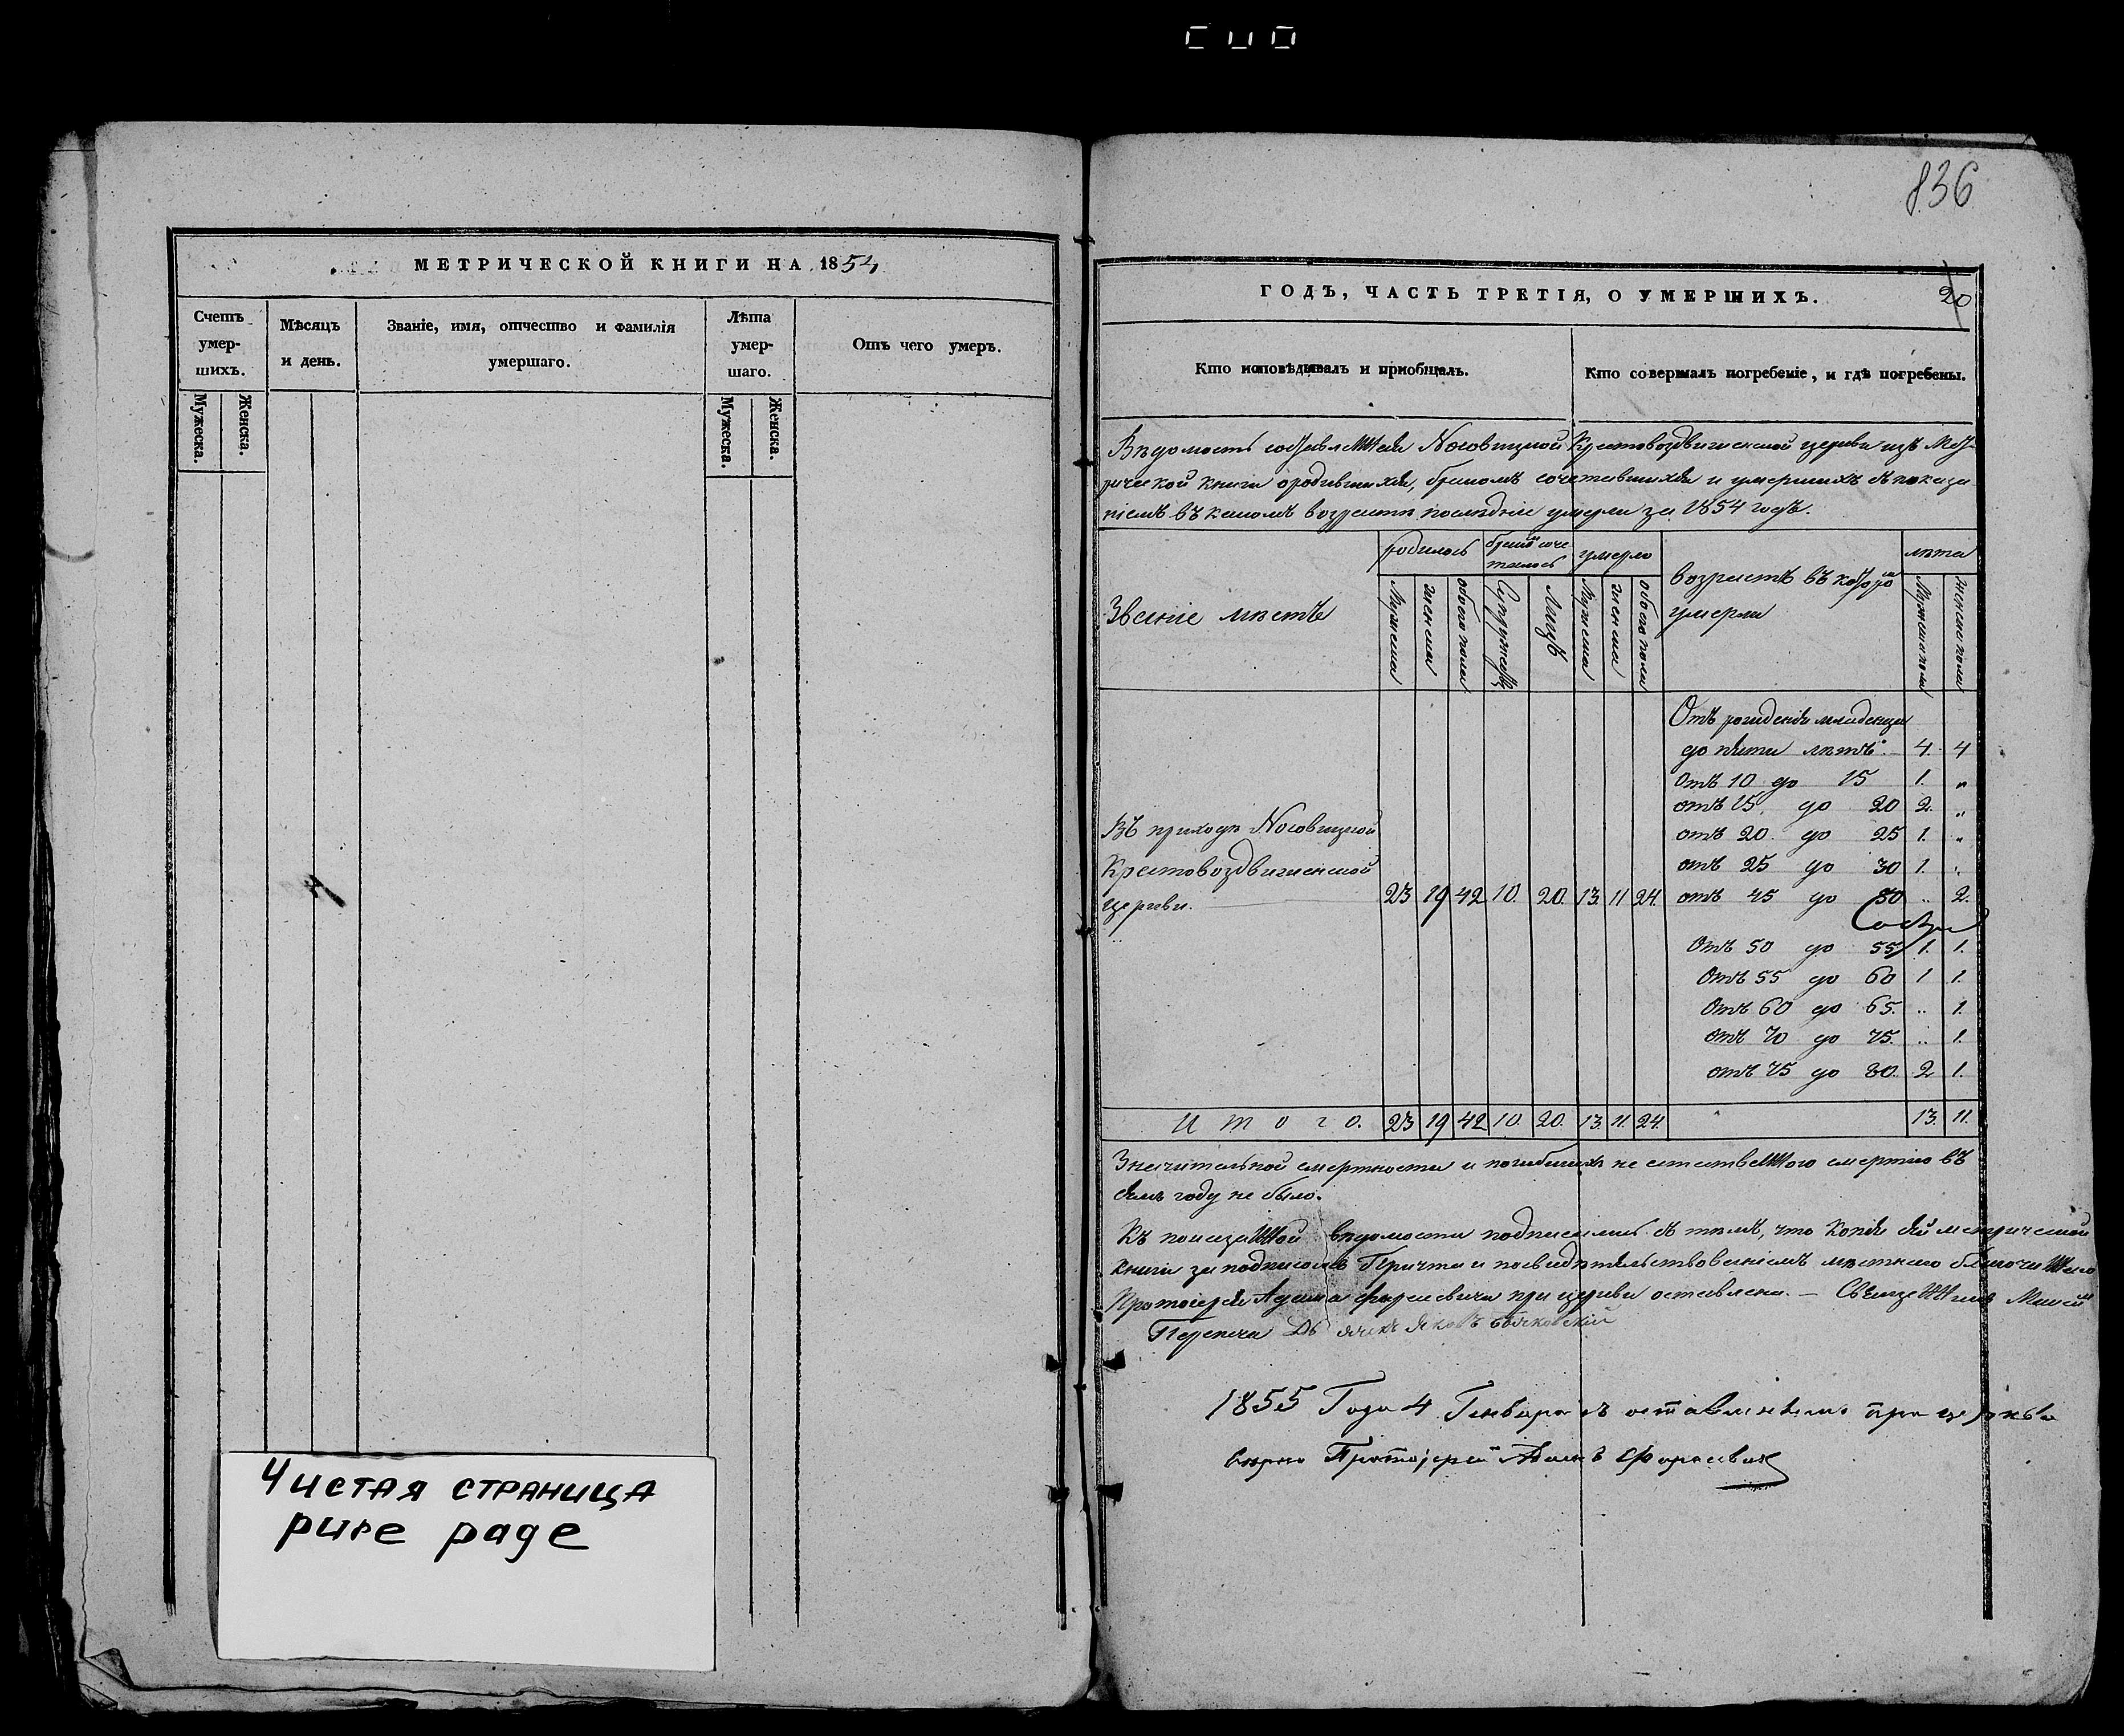 836
МЕТРИЧЕСКОЙ КНИГИ НА 1854
Счетъ умер-шихъ.
Мѣсяцъ и день.
Званіе, имя, отчество и фамилія умершаго.
Лѣта умер-шаго.
Отъ чего умеръ.
Мужеска.
Женска.
Мужеска.
Женска.
Чистая страница
pure page
ГОДЪ, ЧАСТЬ ТРЕТІЯ, О УМЕРШИХЪ.
20
Кто исповѣдывалъ и пріобщалъ.
Кто совершалъ погребеніе, и гдѣ погребены.
Вѣдомость составленная Носовицкой Крестовоздвиженской церкви изъ Мет-
рической книги ородившихся, бракомъ сочетавшихся и умершихъ съ показа-
ніемъ въ какомъ возрастѣ послѣдніе умерли за 1854 годъ.
Званіе мѣстъ
родилось
бракомъ соче-
талось
умерло
возрастъ въ которомъ
умерли
лѣта
Мужеска
женска
обоего пола
Супружествъ
Лицъ
Мужеска
женска
обоего пола
Мужеска пола
женска пола
Отъ рожденія младенца
до пяти лѣтъ. 4. 4
Отъ 10 до 15 1. „
отъ 15 до 20 2. „
отъ 20 до 25 1. „
отъ 25 до 30 1. „
В приходѣ Носовицкой
Крестовоздвиженской
церкви. 23 19 42 10. 20. 13 11 24. отъ 45 до 50 „ 2.
Отъ 50 до 55 1. 1.
Отъ 55 до 60 1 1.
Отъ 60 до 65. „ 1.
отъ 70 до 75. „ 1.
отъ 75 до 80. 2 1.
Итого. 23 19 42 10. 20. 13. 11. 24. 13. 11.
Значительной смертности и погибшихъ не естественного смертію въ
семъ году не было.
Къ показанной вѣдомости подписались въ томъ, что копія сей метрической
книги за подписомъ Причта и посвидѣтельствованіемъ мѣстнаго благочиннаго
Протоіерея Адама Фарсевича при церкви оставлена. — Священникъ
Дьячекъ Яковъ
1855 Года 4 Генваря съ оставленнымъ при церкви
вѣрно Протоіерей Адамъ Фарсевичъ